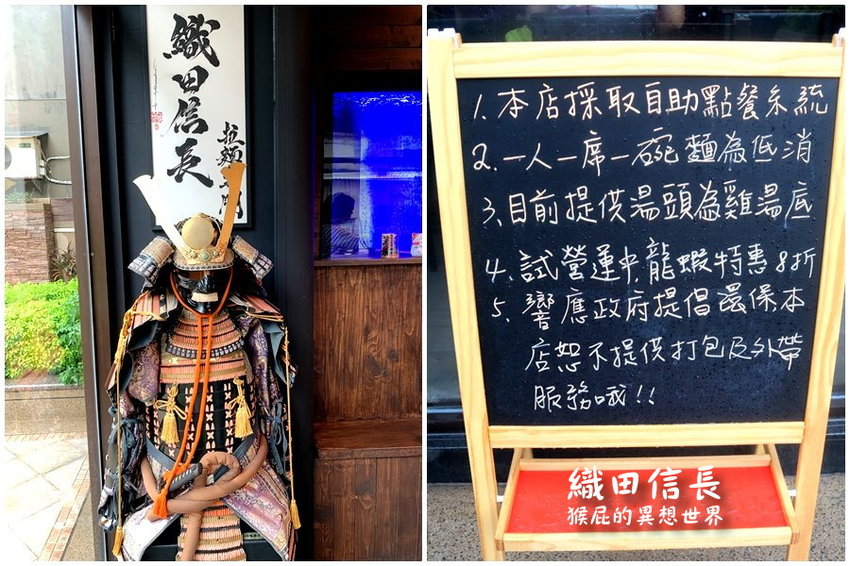 織田信長
拉麵
1.本店採取自助點餐系統
2.一人一席一碗麵為低消
3.目前提供湯頭為雞湯底
4.試營運中,龍蝦特惠8折
5.響應政府提倡環保本
店恕不提供打包及外帶
服務哦!!
織田信長
猴屁的異想世界